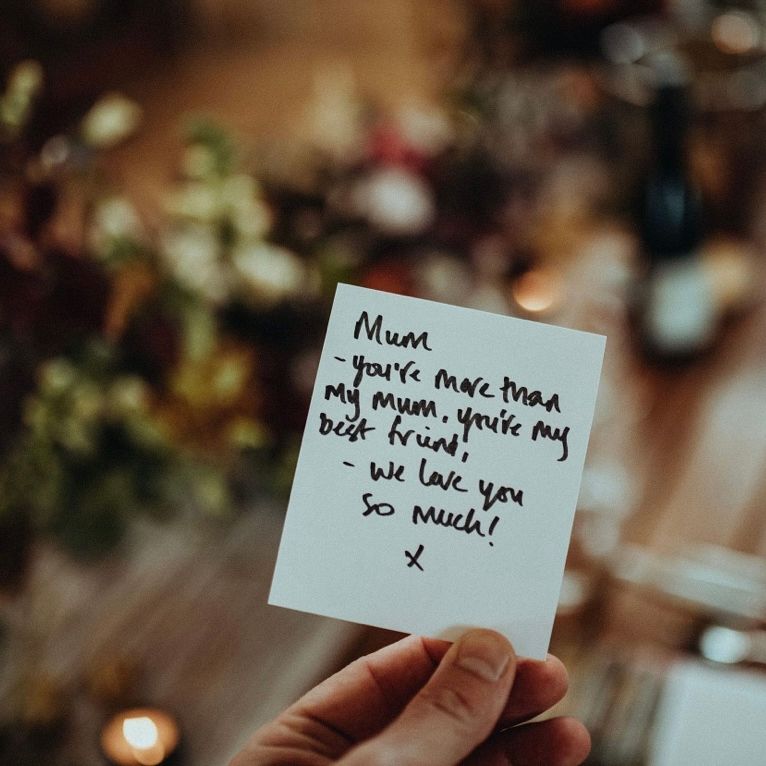 Mum
- you're more than
my mum, you're my
best friend,
- we love you
so much!
x